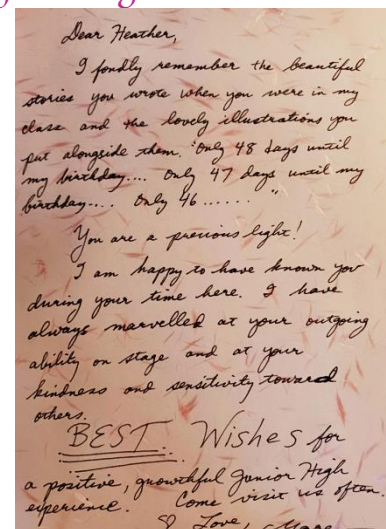 Dear Heather,
I fondly remember the beautiful
stories you wrote when you were in my
class and the lovely illustrations you
put alongside them. "Only 48 days until
my birthday.... Only 47 days until my
birthday.... Only 46 ...... "
You are a precious light!
I am happy to have known you
during your time here. I have
always marvelled at your outgoing
ability on stage and at your
kindness and sensitivity toward
others.
BEST Wishes for
a positive, growthful Junior High
experience. Come visit us often.
Love,